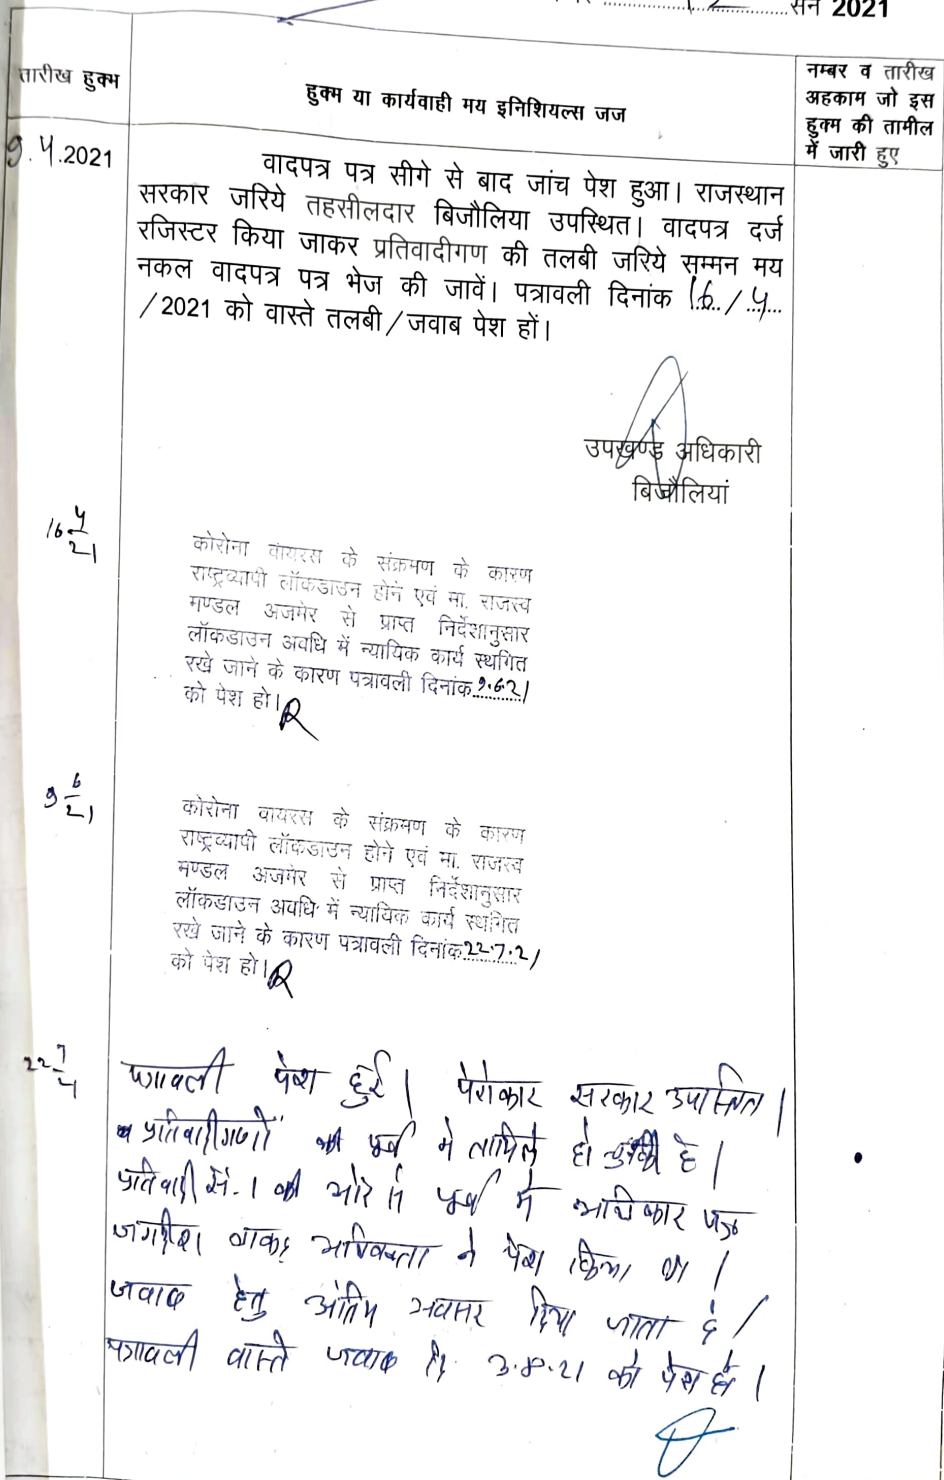 सन 2021
तारीख हुक्म
हुक्म या कार्यवाही मय इनिशियल्स जज
नम्बर व तारीख
अहकाम जो इस
हुक्म की तामील
में जारी हुए
9.4.2021
वादपत्र पत्र सीगे से बाद जांच पेश हुआ। राजस्थान
सरकार जरिये तहसीलदार बिजौलिया उपस्थित। वादपत्र दर्ज
रजिस्टर किया जाकर प्रतिवादीगण की तलबी जरिये सम्मन मय
नकल वादपत्र पत्र भेज की जावें। पत्रावली दिनांक 16/4
/2021 को वास्ते तलबी/जवाब पेश हों।
उपखण्ड अधिकारी
बिजौलियां
16 4/21
कोरोना वायरस के संक्रमण के कारण
राष्ट्रव्यापी लॉकडाउन होने एवं मा. राजस्व
मण्डल अजमेर से प्राप्त निर्देशानुसार
लॉकडाउन अवधि में न्यायिक कार्य स्थगित
रखे जाने के कारण पत्रावली दिनांक 9.6.21
को पेश हो।
9 6/21
कोरोना वायरस के संक्रमण के कारण
राष्ट्रव्यापी लॉकडाउन होने एवं मा. राजस्व
मण्डल अजमेर से प्राप्त निर्देशानुसार
लॉकडाउन अवधि में न्यायिक कार्य स्थगित
रखे जाने के कारण पत्रावली दिनांक 22.7.21
को पेश हो।
22 7/21
पत्रावली पेश हुई। पेरोकार सरकार उपस्थित।
प्रतिवादीगणों की पूर्व में तामिल हो चुकी है।
प्रतिवादी सं.1 की ओर से पूर्व में अधिकार पत्र
जगदीश अधिवक्ता ने पेश किया था।
जवाब हेतु अंतिम अवसर दिया जाता है।
पत्रावली वास्ते जवाब दि. 3.8.21 को पेश हो।